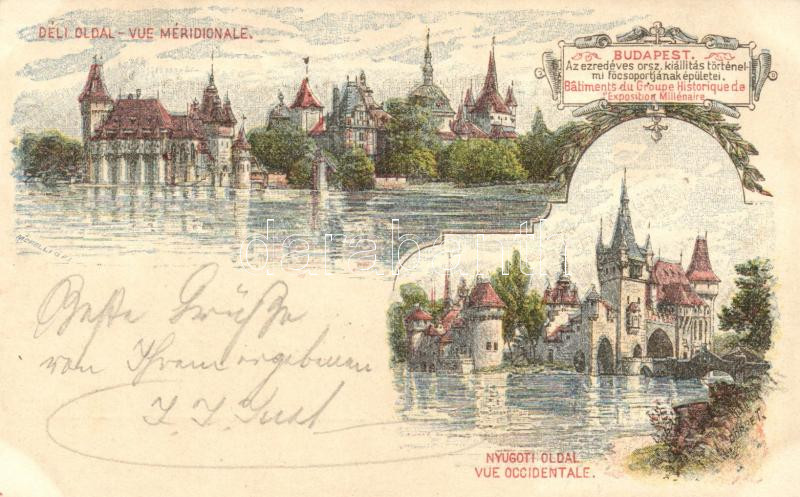 DÉLI OLDAL - VUE MÉRIDIONALE.
BUDAPEST.
Az ezredéves orsz. kiállitás történel-
mi főcsoportjának épületei.
Bâtiments du Groupe Historique de
l'Exposition Millénaire
darabanth
Beste Grüße
von Ihrem ergebenen
NYUGOTI OLDAL
VUE OCCIDENTALE.